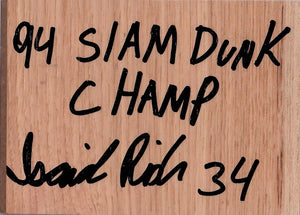 94 SLAM DUNK
CHAMP
Isaiah Rider 34